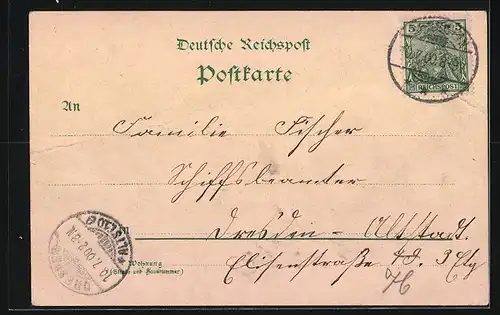 Deutsche Reichspost
Postkarte
An
Familie Fischer
Schiffsbeamter
Dresden - Altstadt.
Wohnung
(Straße und Hausnummer)
Elisenstraße 3 Etg
5 5
REICHSPOST
ALTSTADT